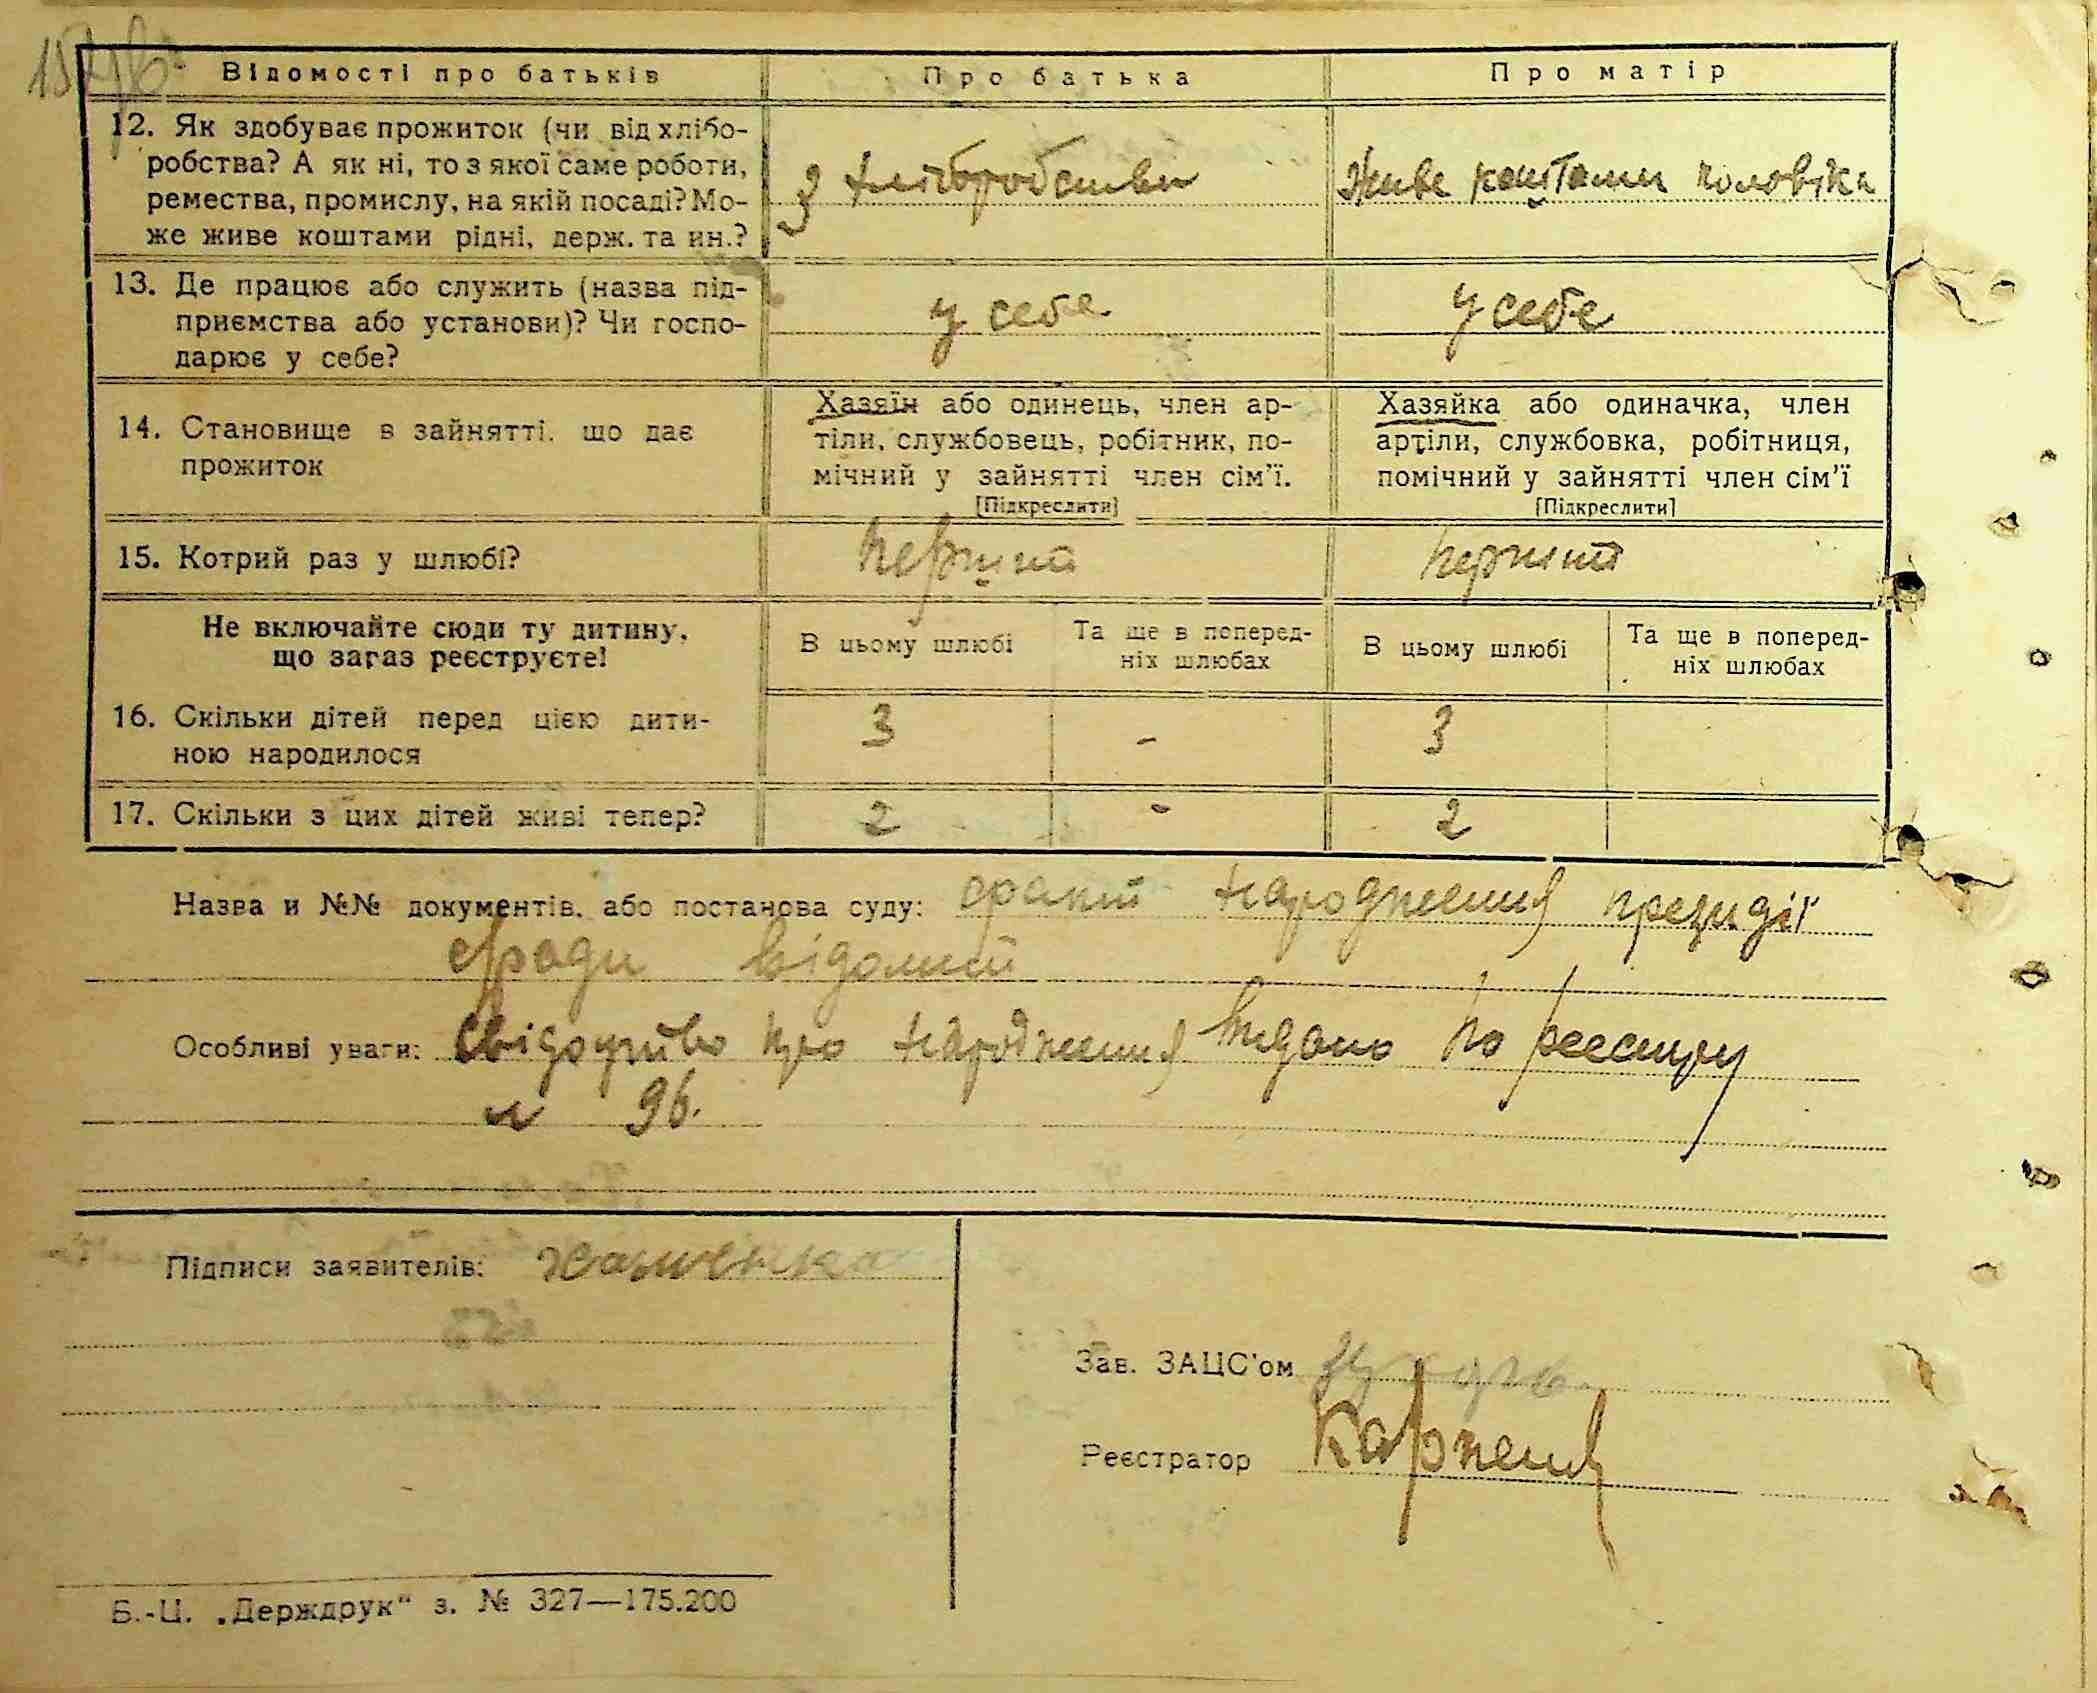 Відомості про батьків Про батька Про матір
12. Як здобуває прожиток (чи від хлібо-
робства? А як ні, то з якої саме роботи,
ремества, промислу, на якій посаді? Мо-
же живе коштами рідні, держ. та ин.?
З хліборобства
Живе коштами чоловіка
13. Де працює або служить (назва під-
приємства або установи)? Чи госпо-
дарює у себе?
у себе
у себе
14. Становище в зайнятті, що дає
прожиток
Хазяїн або одинець, член ар-
тіли, службовець, робітник, по-
мічний у зайнятті член сім'ї.
[Підкреслити]
Хазяйка або одиначка, член
артіли, службовка, робітниця,
помічний у зайнятті член сім'ї
[Підкреслити]
15. Котрий раз у шлюбі?
Не включайте сюди ту дитину,
що зараз реєструєте!
В цьому шлюбі
Та ще в поперед-
ніх шлюбах
В цьому шлюбі
Та ще в поперед-
ніх шлюбах
16. Скільки дітей перед цією дити-
ною народилося
3 - 3
17. Скільки з цих дітей живі тепер? 2 - 2
Назва и №№ документів, або постанова суду: факт народження президії
с/ради відомий
Особливі уваги: Свідоцтво про народження видано по реестру
№ 96.
Підписи заявителів:
Зав. ЗАЦС'ом
Реєстратор
Б.-Ц. „Держдрук" з. № 327—175.200